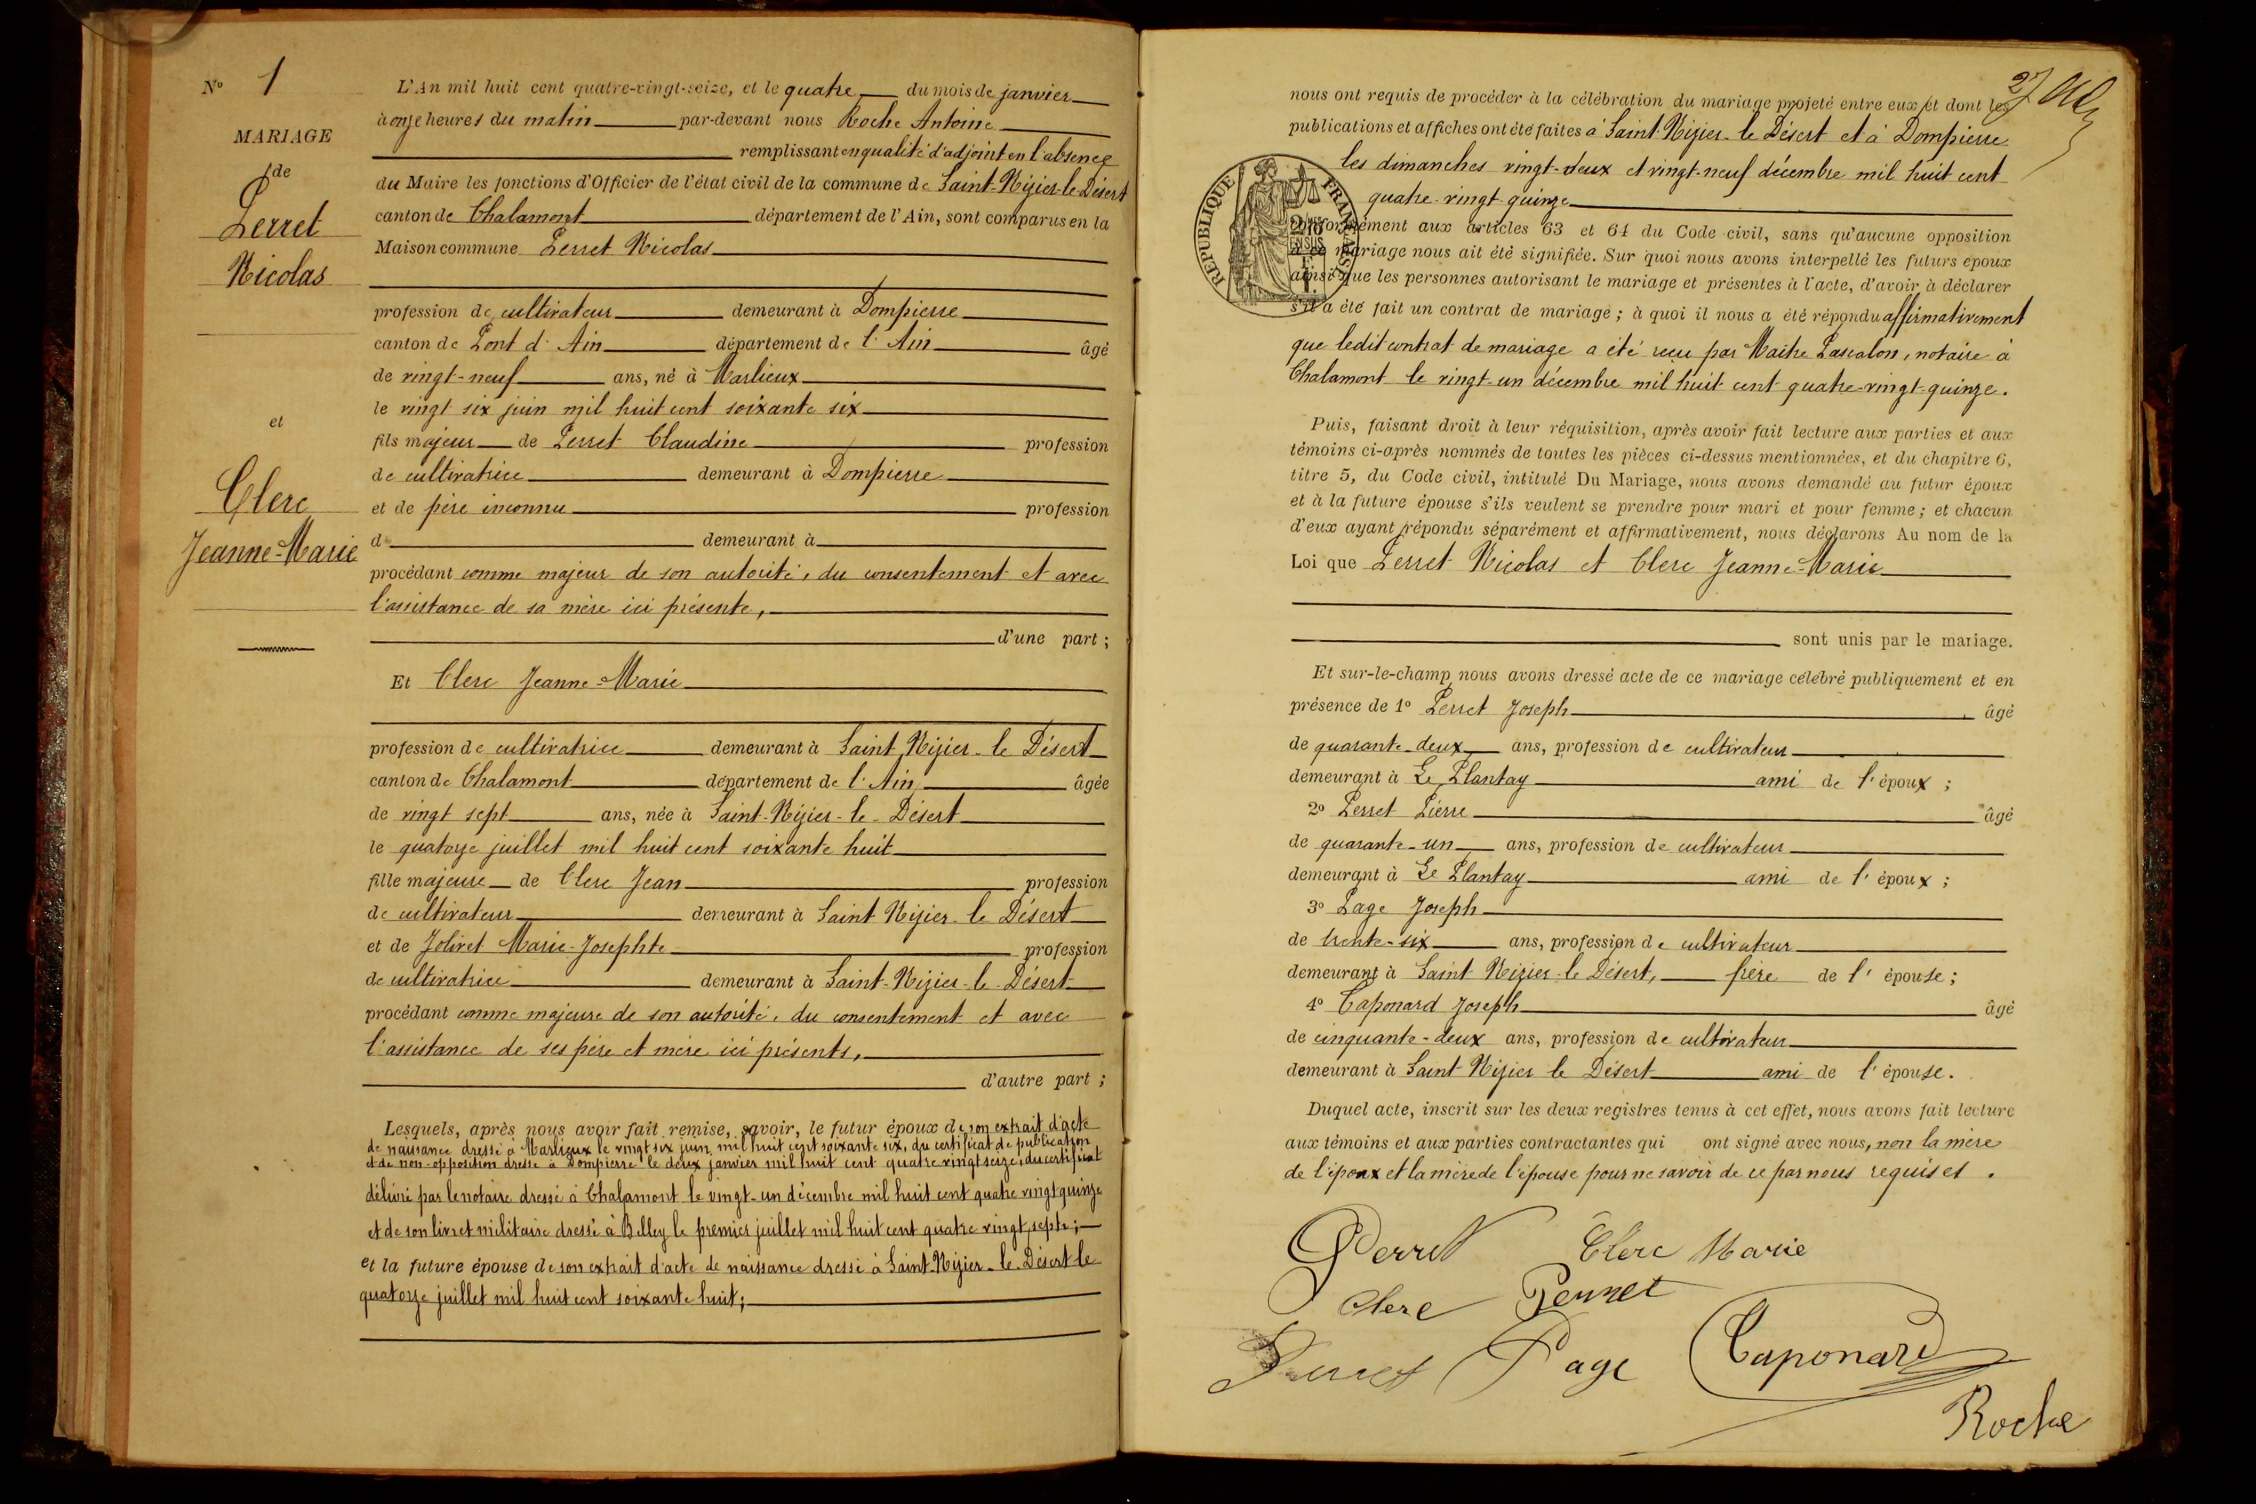 Nº 1
MARIAGE
de
Perret
Nicolas
et
Clerc
Jeanne-Marie
L'An mil huit cent quatre-vingt-seize, et le quatre du mois de janvier
à onze heures du matin par-devant nous Roche Antoine
remplissant en qualité d'adjoint en l'absence
du Maire les fonctions d'Officier de l'état civil de la commune de Saint-Nizier-le-Désert
canton de Chalamont département de l'Ain, sont comparus en la
Maison commune Perret Nicolas
profession de cultivateur demeurant à Dompierre
canton de Pont d'Ain département de l'Ain âgé
de vingt-neuf ans, né à Marlieux
le vingt six juin mil huit cent soixante six
fils majeur de Perret Claudine profession
de cultivatrice demeurant à Dompierre
et de père inconnu profession
d demeurant à
procédant comme majeur de son autorité, du consentement et avec
l'assistance de sa mère ici présente,
d'une part ;
Et Clerc Jeanne-Marie
profession de cultivatrice demeurant à Saint Nizier-le Désert
canton de Chalamont département de l'Ain âgée
de vingt sept ans, née à Saint-Nizier-le-Désert
le quatorze juillet mil huit cent soixante huit
fille majeure de Clerc Jean profession
de cultivateur demeurant à Saint Nizier-le Désert
et de Jolivet Marie-Josephte profession
de cultivatrice demeurant à Saint-Nizier-le-Désert
procédant comme majeure de son autorité, du consentement et avec
l'assistance de ses père et mère ici présents,
d'autre part ;
Lesquels, après nous avoir fait remise, savoir, le futur époux de son extrait d'acte
de naissance dressé à Marlieux le vingt six juin mil huit cent soixante six, du certificat de publication
et de non-opposition dressé à Dompierre le deux janvier mil huit cent quatre vingt seize, du certificat
délivré par le notaire dressé à Chalamont le vingt-un décembre mil huit cent quatre vingt quinze
et de son livret militaire dressé à Belley le premier juillet mil huit cent quatre vingt sept ;
et la future épouse de son extrait d'acte de naissance dressé à Saint-Nizier-le-Désert le
quatorze juillet mil huit cent soixante huit ;
nous ont requis de procéder à la célébration du mariage projeté entre eux et dont les
publications et affiches ont été faites à Saint-Nizier-le Désert et à Dompierre
les dimanches vingt-deux et vingt-neuf décembre mil huit cent
quatre-vingt-quinze
RÉPUBLIQUE FRANÇAISE
conformément aux articles 63 et 64 du Code civil, sans qu'aucune opposition
à ce mariage nous ait été signifiée. Sur quoi nous avons interpellé les futurs époux
ainsi que les personnes autorisant le mariage et présentes à l'acte, d'avoir à déclarer
s'il a été fait un contrat de mariage ; à quoi il nous a été répondu affirmativement
que ledit contrat de mariage a été reçu par Maître Pascalon, notaire à
Chalamont le vingt-un décembre mil huit cent quatre-vingt-quinze.
Puis, faisant droit à leur réquisition, après avoir fait lecture aux parties et aux
témoins ci-après nommés de toutes les pièces ci-dessus mentionnées, et du chapitre 6,
titre 5, du Code civil, intitulé Du Mariage, nous avons demandé au futur époux
et à la future épouse s'ils veulent se prendre pour mari et pour femme ; et chacun
d'eux ayant répondu séparément et affirmativement, nous déclarons Au nom de la
Loi que Perret Nicolas et Clerc Jeanne-Marie
sont unis par le mariage.
Et sur-le-champ nous avons dressé acte de ce mariage célébré publiquement et en
présence de 1º Perret Joseph âgé
de quarante-deux ans, profession de cultivateur
demeurant à Le Plantay ami de l'époux ;
2º Perret Pierre âgé
de quarante-un ans, profession de cultivateur
demeurant à Le Plantay ami de l'époux ;
3º Page Joseph
de trente-six ans, profession de cultivateur
demeurant à Saint Nizier-le Désert, frère de l'épouse ;
4º Caponard Joseph âgé
de cinquante-deux ans, profession de cultivateur
demeurant à Saint Nizier le Désert ami de l'épouse.
Duquel acte, inscrit sur les deux registres tenus à cet effet, nous avons fait lecture
aux témoins et aux parties contractantes qui ont signé avec nous, non la mère
de l'époux et la mère de l'épouse pour ne savoir de ce par nous requises.
Perret Clerc Marie
Clerc Perret
Perret Page Caponard
Roche